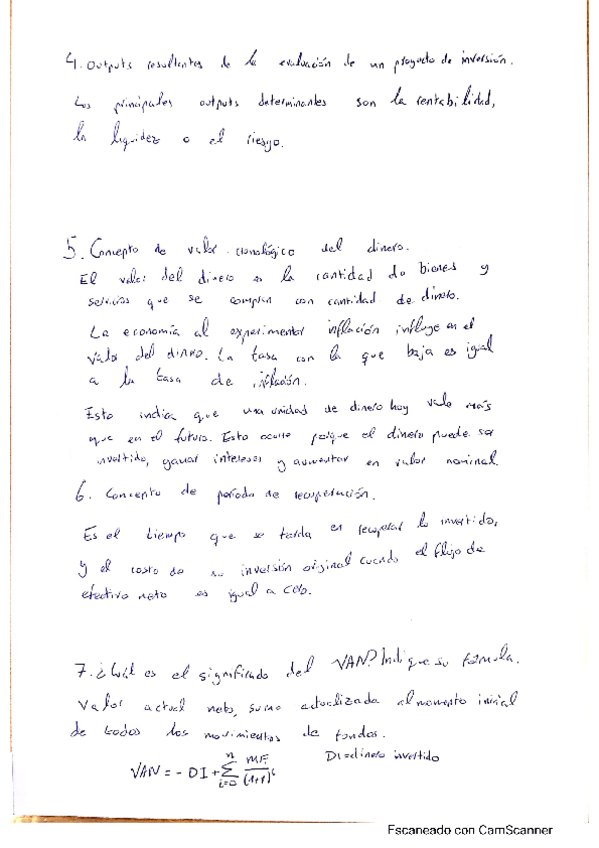 4. Outputs resultantes de la evaluación de un proyecto de inversión.
Los principales outputs determinantes son la rentabilidad,
la liquidez o el riesgo.
5. Concepto de valor cronológico del dinero.
El valor del dinero es la cantidad de bienes y
servicios que se compran con cantidad de dinero.
La economía al experimentar inflación influye en el
valor del dinero. La tasa con la que baja es igual
a la tasa de inflación.
Esto indica que una unidad de dinero hoy vale más
que en el futuro. Esto ocurre porque el dinero puede ser
invertido, ganar intereses y aumentar en valor nominal.
6. Concepto de período de recuperación.
Es el tiempo que se tarda en recuperar lo invertido,
y el costo de su inversión original cuando el flujo de
efectivo neto es igual a cero.
7. ¿Cuál es el significado del VAN? Indique su fórmula.
Valor actual neto, suma actualizada al momento inicial
de todos los movimientos de fondos.
VAN = - DI + n Σ i=0 MFi / (1+r)^i DI=dinero invertido
Escaneado con CamScanner